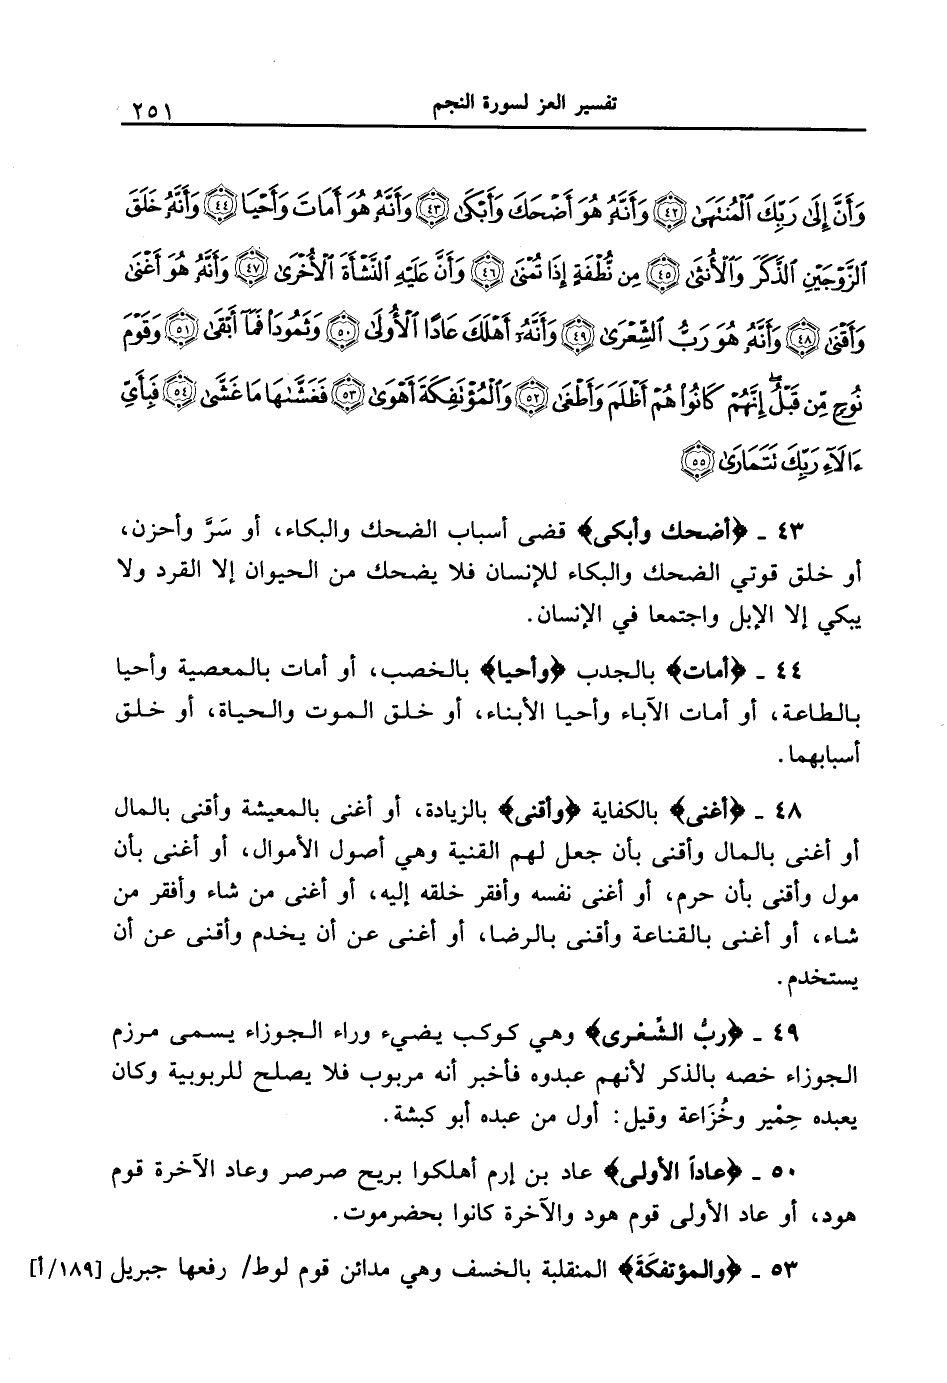 تفسير العز لسورة النجم ٢٥١
وَأَنَّ إِلَىٰ رَبِّكَ ٱلْمُنتَهَىٰ ٤٢ وَأَنَّهُۥ هُوَ أَضْحَكَ وَأَبْكَىٰ ٤٣ وَأَنَّهُۥ هُوَ أَمَاتَ وَأَحْيَا ٤٤ وَأَنَّهُۥ خَلَقَ
ٱلزَّوْجَيْنِ ٱلذَّكَرَ وَٱلْأُنثَىٰ ٤٥ مِن نُّطْفَةٍ إِذَا تُمْنَىٰ ٤٦ وَأَنَّ عَلَيْهِ ٱلنَّشْأَةَ ٱلْأُخْرَىٰ ٤٧ وَأَنَّهُۥ هُوَ أَغْنَىٰ
وَأَقْنَىٰ ٤٨ وَأَنَّهُۥ هُوَ رَبُّ ٱلشِّعْرَىٰ ٤٩ وَأَنَّهُۥٓ أَهْلَكَ عَادًا ٱلْأُولَىٰ ٥٠ وَثَمُودَا۟ فَمَآ أَبْقَىٰ ٥١ وَقَوْمَ
نُوحٍ مِّن قَبْلُ ۖ إِنَّهُمْ كَانُوا۟ هُمْ أَظْلَمَ وَأَطْغَىٰ ٥٢ وَٱلْمُؤْتَفِكَةَ أَهْوَىٰ ٥٣ فَغَشَّىٰهَا مَا غَشَّىٰ ٥٤ فَبِأَىِّ
ءَالَآءِ رَبِّكَ تَتَمَارَىٰ ٥٥
٤٣ - ﴿أضحك وأبكى﴾ قضى أسباب الضحك والبكاء، أو سَرَّ وأحزن،
أو خلق قوتي الضحك والبكاء للإنسان فلا يضحك من الحيوان إلا القرد ولا
يبكي إلا الإبل واجتمعا في الإنسان.
٤٤ - ﴿أمات﴾ بالجدب ﴿وأحيا﴾ بالخصب، أو أمات بالمعصية وأحيا
بالطاعة، أو أمات الآباء وأحيا الأبناء، أو خلق الموت والحياة، أو خلق
أسبابهما.
٤٨ - ﴿أغنى﴾ بالكفاية ﴿وأقنى﴾ بالزيادة، أو أغنى بالمعيشة وأقنى بالمال
أو أغنى بالمال وأقنى بأن جعل لهم القنية وهي أصول الأموال، أو أغنى بأن
مول وأقنى بأن حرم، أو أغنى نفسه وأفقر خلقه إليه، أو أغنى من شاء وأفقر من
شاء، أو أغنى بالقناعة وأقنى بالرضا، أو أغنى عن أن يخدم وأقنى عن أن
يستخدم.
٤٩ - ﴿ربُّ الشِّعْرى﴾ وهي كوكب يضيء وراء الجوزاء يسمى مرزم
الجوزاء خصه بالذكر لأنهم عبدوه فأخبر أنه مربوب فلا يصلح للربوبية وكان
يعبده حِمْير وخُزَاعة وقيل: أول من عبده أبو كبشة.
٥٠ - ﴿عاداً الأولى﴾ عاد بن إرم أهلكوا بريح صرصر وعاد الآخرة قوم
هود، أو عاد الأولى قوم هود والآخرة كانوا بحضرموت.
٥٣ - ﴿والمؤتفكَةَ﴾ المنقلبة بالخسف وهي مدائن قوم لوط/ رفعها جبريل [١٨٩/أ]